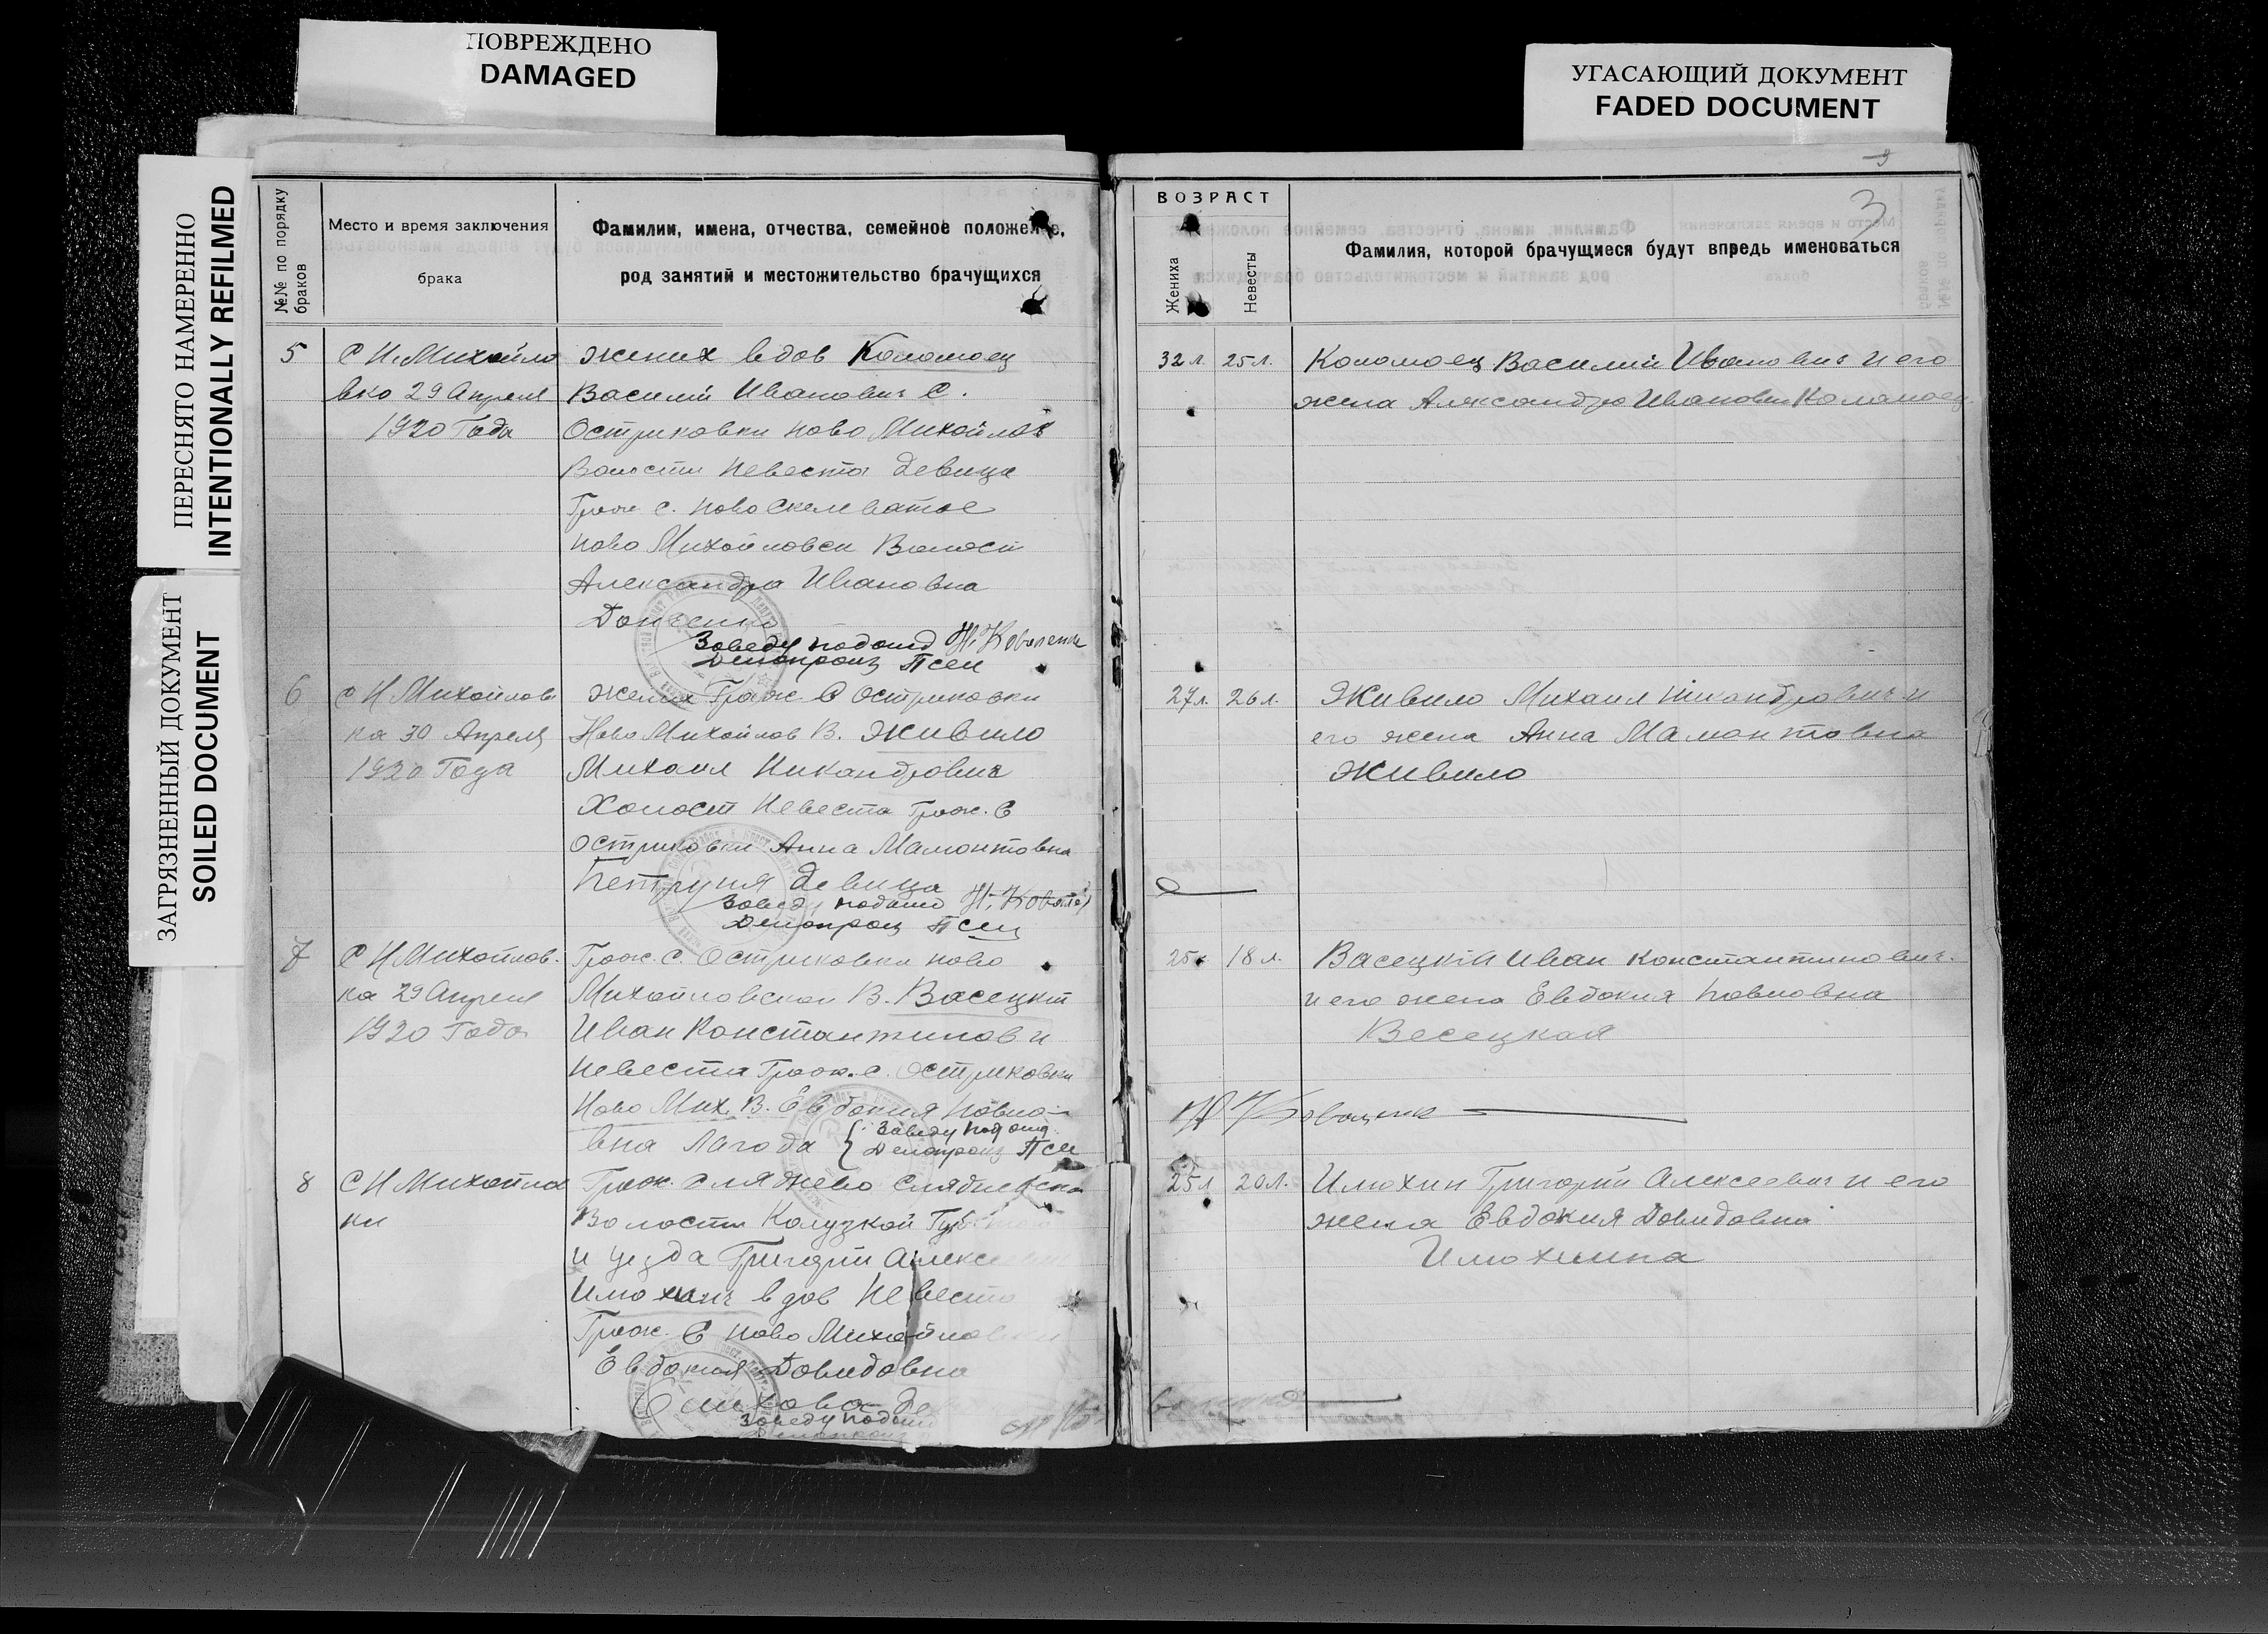 ПОВРЕЖДЕНО
DAMAGED
УГАСАЮЩИЙ ДОКУМЕНТ
FADED DOCUMENT
ПЕРЕСНЯТО НАМЕРЕННО
INTENTIONALLY REFILMED
ЗАГРЯЗНЕННЫЙ ДОКУМЕНТ
SOILED DOCUMENT
№№ по порядку
браков
Место и время заключения
брака
Фамилии, имена, отчества, семейное положение,
род занятий и местожительство брачущихся
5
С Н. Михайло
вко 29 Апреля
1920 Года
жених вдов Коломоец
Василий Иванович С.
Остриковки ново Михайлов
Волости Невеста девица
Граж с. Ново Скелеватое
ново Михайловск Волост
Александра Ивановна
Донченко
Заведу подотд Н. Коваленк
Делопроиз Псел
6
С Н Михайлов
ка 30 Апреля
1920 Года
жених Граж С Остриковки
Ново Михайлов В. Живило
Михаил Никандрович
Холост Невеста Граж. С
Остриковки Анна Мамонтовна
Петруня девица
Завед, подотд Н. Ковале
Делопроиз Псел
7
С Н Михайлов.
ка 29 Апреля
1920 Года
Граж. С. Остриковки ново
Михайловской В. Васецкий
Иван Константинов и
Невеста Граж. с. Остриковки
Ново Мих. В. Евдокия Павло-
вна Лагода
Заведу Подотд
Делопроиз Псел
8
С Н Михайлов
ки
Граж. С
Волости Калузкой Губ
и уезда Григорий Алексе
Илюхинъ вдов Невеста
Граж. С Ново Михайлов
Евдокия Довидовна
Заведу подотд
Делопроиз
3
3
ВОЗРАСТ
Жениха
Невесты
Фамилия, которой брачущиеся будут впредь именоваться
32 л. 25 л.
Коломоец Василий Иванович и его
жена Александра Ивановн Коломоец
27 л. 26 л.
Живило Михаил Никандрович и
его жена Анна Мамонтовна
Живило
25 18 л.
Васецкий Иван Константинович.
и его жена Евдокия Павловна
Весецкая
25 л 20 л.
Илюхин Григорий Алексеевич и его
жена Евдокия Довидовна
Илюхина